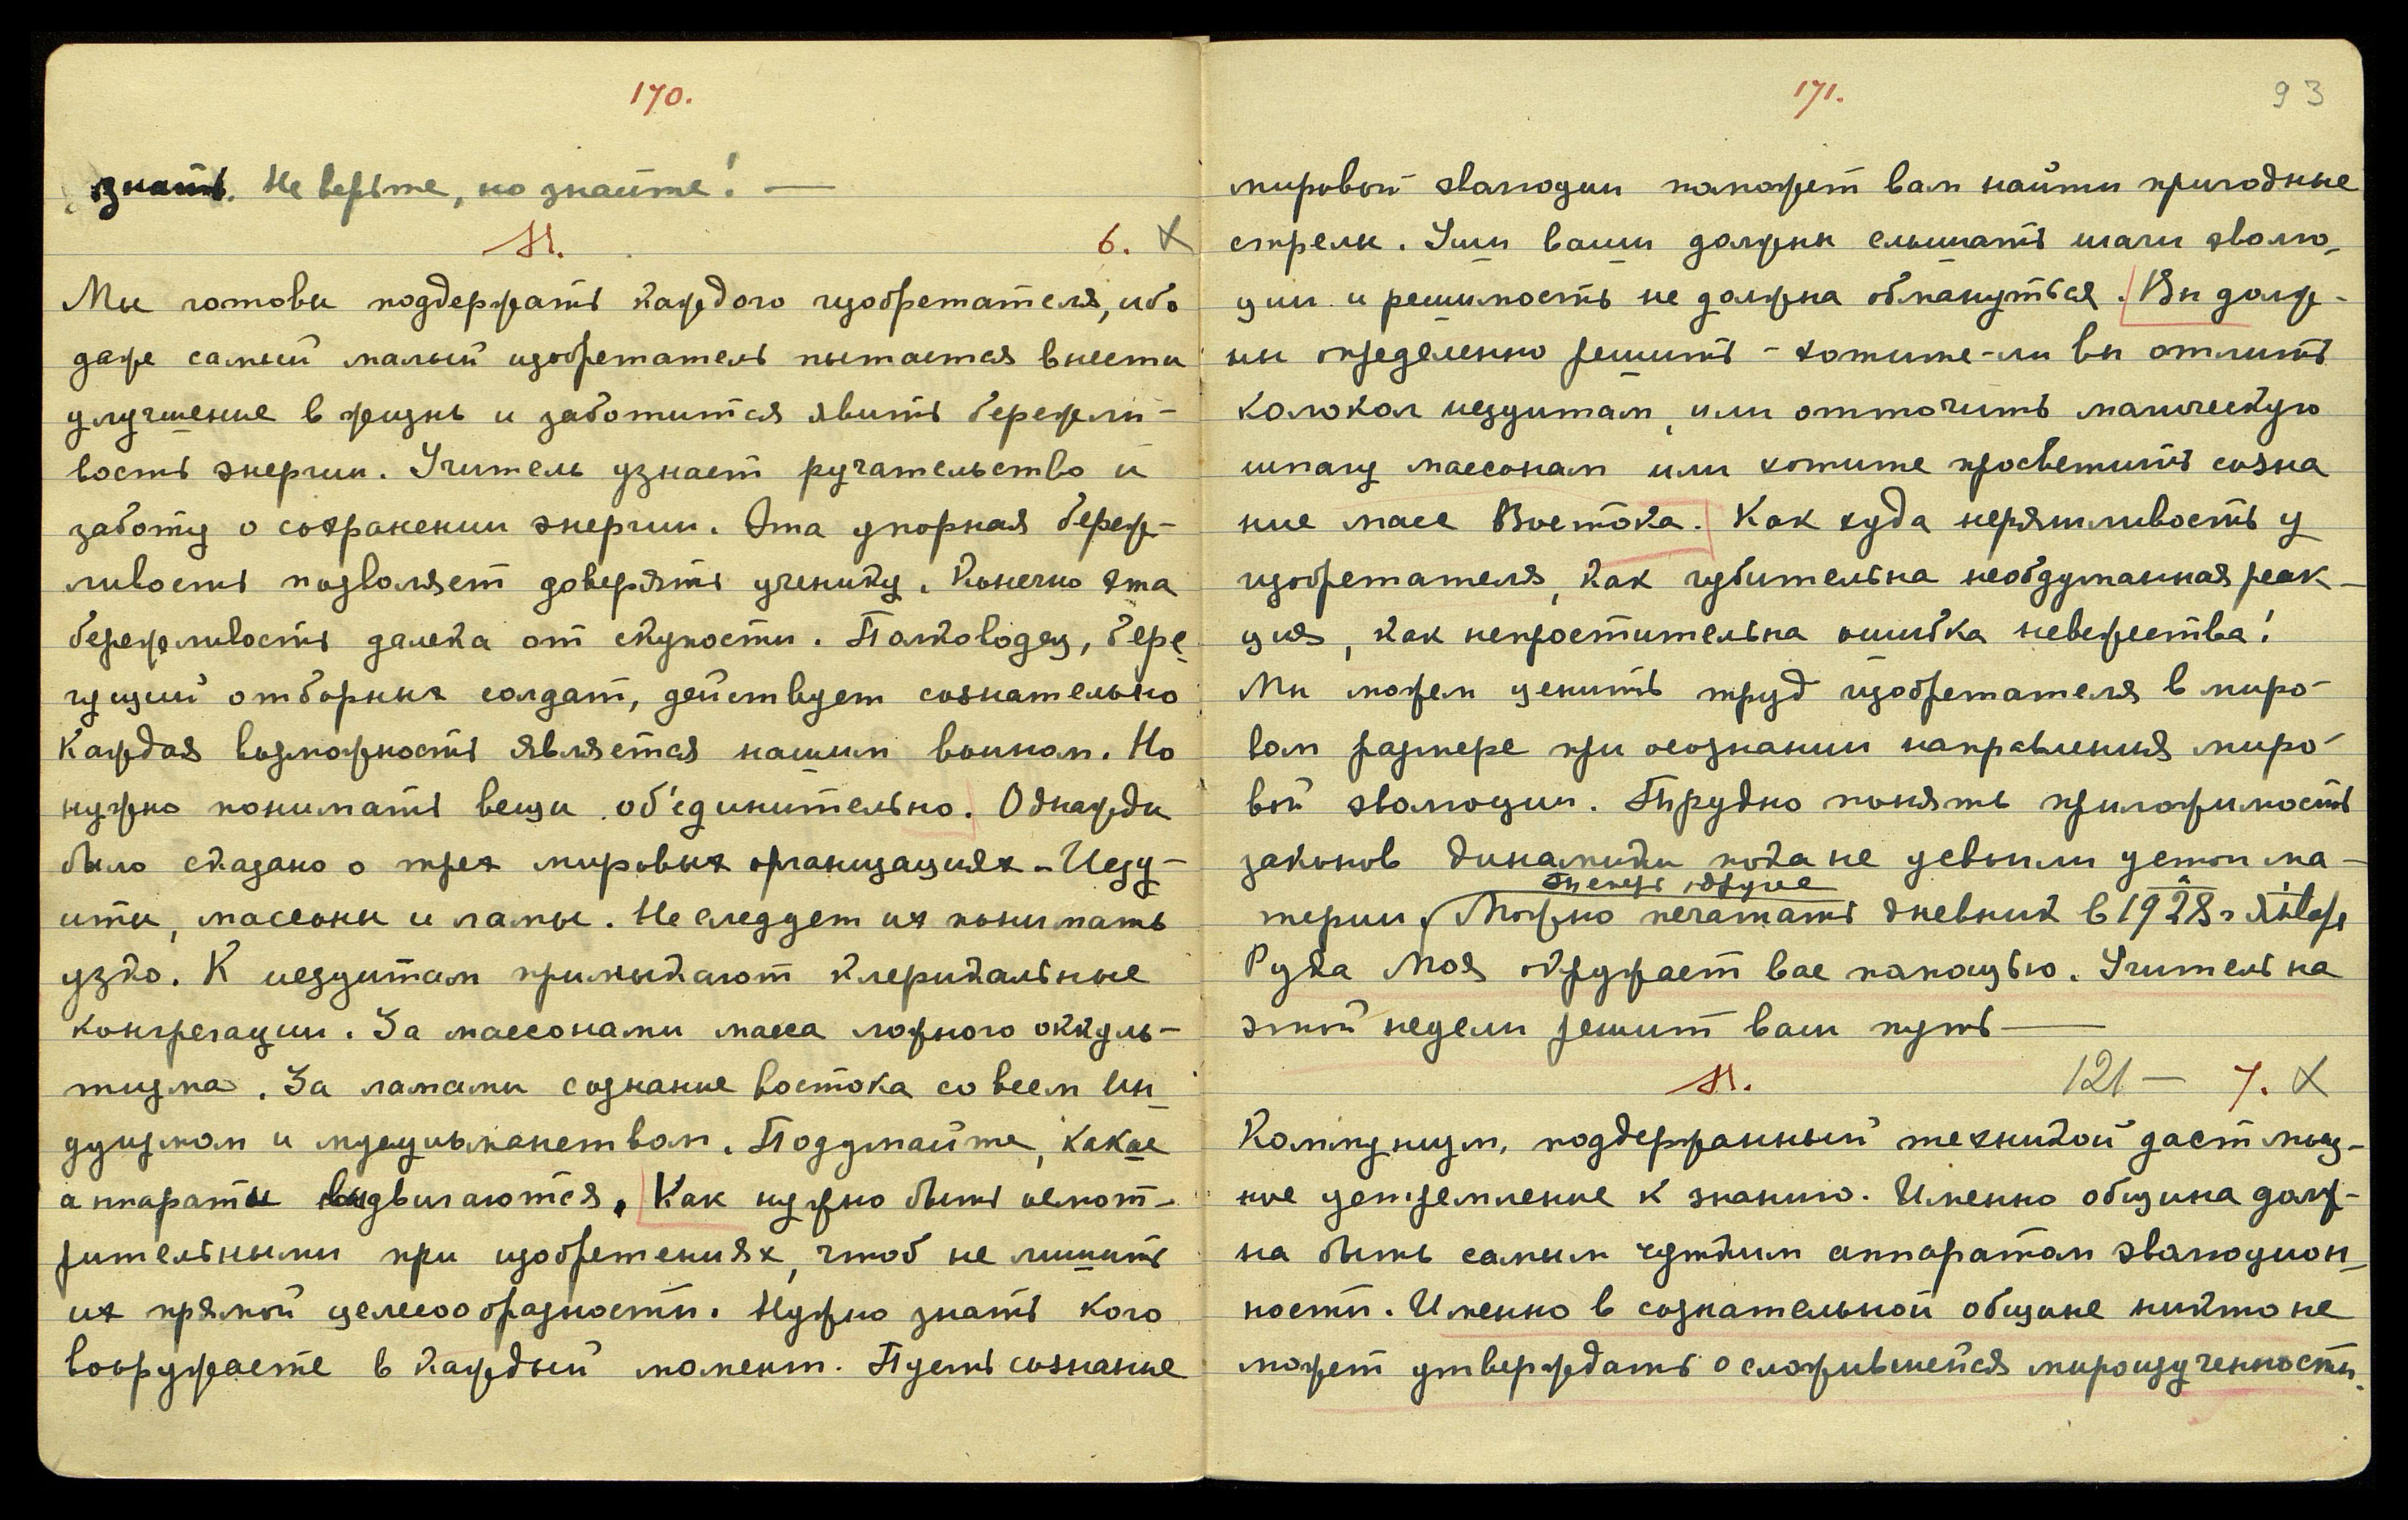 170.
знать. Не верьте, но знайте! —
6. X
Мы готовы поддержать каждого изобретателя, ибо
даже самый малый изобретатель пытается внести
улучшение в жизнь и заботится явить бережли-
вость энергии. Учитель узнает ручательство и
заботу о сохранении энергии. Эта упорная береж-
ливость позволяет доверять ученику. Конечно эта
бережливость далека от скупости. Полководец, бере-
гущий отборных солдат, действует сознательно
Каждая возможность является нашим воином. Но
нужно понимать вещи об'единительно. Однажды
было сказано о трех мировых организациях - Иезу-
иты, массоны и ламы. Не следует их понимать
узко. К иезуитам примыкают клерикальные
конгрегации. За массонами масса ложного оккуль-
тизма. За ламами сознание востока со всем Ин-
дуизмом и мусульманством. Подумайте, какие
аппараты выдвигаются. Как нужно быть осмот-
рительными при изобретениях, чтоб не лишить
их прямой целесообразности. Нужно знать кого
вооружаете в каждый момент. Пусть сознание
171.
93
мировой эволюции поможет вам найти пригодные
стрелы. Уши ваши должны слышать шаги эволю-
ции и решимость не должна обмануться. Вы долж-
ны определенно решить - хотите-ли вы отлить
колокол иезуитам, или отточить магическую
шпагу массонам или хотите просветить созна
ние масс Востока. Как худа неряшливость у
изобретателя, как губительна необдуманная реак-
ция, как непростительна ошибка невежества!
Мы можем ценить труд изобретателя в миро-
вом размере при осознании направления миро-
вой эволюции. Трудно понять приложимость
законов динамики пока не усвоили устои ма-
терии. Можно печатать дневник в 1928 г Январе
Рука Моя окружает вас помощью. Учитель на
этой недели решит ваш путь —
121 — 7. X
Коммунизм, поддержанный техникой даст мощ-
ное устремление к знанию. Именно община долж-
на быть самым чутким аппаратом эволюцион-
ности. Именно в сознательной общине никто не
может утверждать о сложившейся мироизученности.